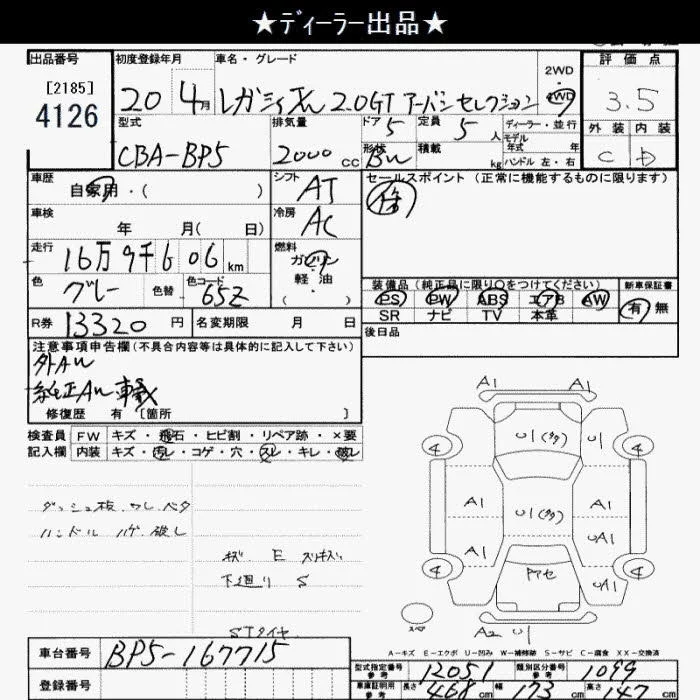 ★ディーラー出品★
出品番号
[2185]
4126
初度登録年月
20 4月
車名・グレード
2.0GT アーバンセレクション
2WD
4WD
評価点
3.5
外装 内装
C D
型式
CBA-BP5
排気量
2000 CC
ドア 5
定員 5 人
形状
積載 kg
ディーラー・並行
モデル年式 年
ハンドル 左・右
車歴
自家用・( )
シフト AT
セールスポイント (正常に機能するものに限ります)
車検
年 月( 日)
冷房 AC
走行
16万9千606 km
燃料
ガソリン
・
軽油
( )
色 グレー
色替
色コード 65Z
装備品 (純正品に限り○をつけてください)
PS PW ABS エアB AW
SR ナビ TV 本革
新車保証書
有 無
R券 13320 円
名変期限 月 日
後日品
注意事項申告欄 (不具合内容等は具体的に記入して下さい)
外AW
純正AW
修復歴 有 [箇所 ]
検査員 FW キズ・飛石・ヒビ割・リペア跡・×要
記入欄 内装 キズ・汚れ・コゲ・穴・スレ・キレ・破レ
ダッシュ板
ハンドル ハゲ
キズ E スリキズ
下廻り S
STタイヤ
A1
A1
4
U1
U1
4
A1
U1
A1
A1
UA1
4
アセ
UA1
4
A2 U1
A-キズ E-エクボ U-凹み W-補修跡 S-サビ C-腐食 XX-交換済
車台番号 BP5-167715
登録番号
型式指定番号 参考 12051
類別区分番号 参考 1099
車庫証明用 参考 長さ 468 cm 幅 173 cm 高さ 147 cm